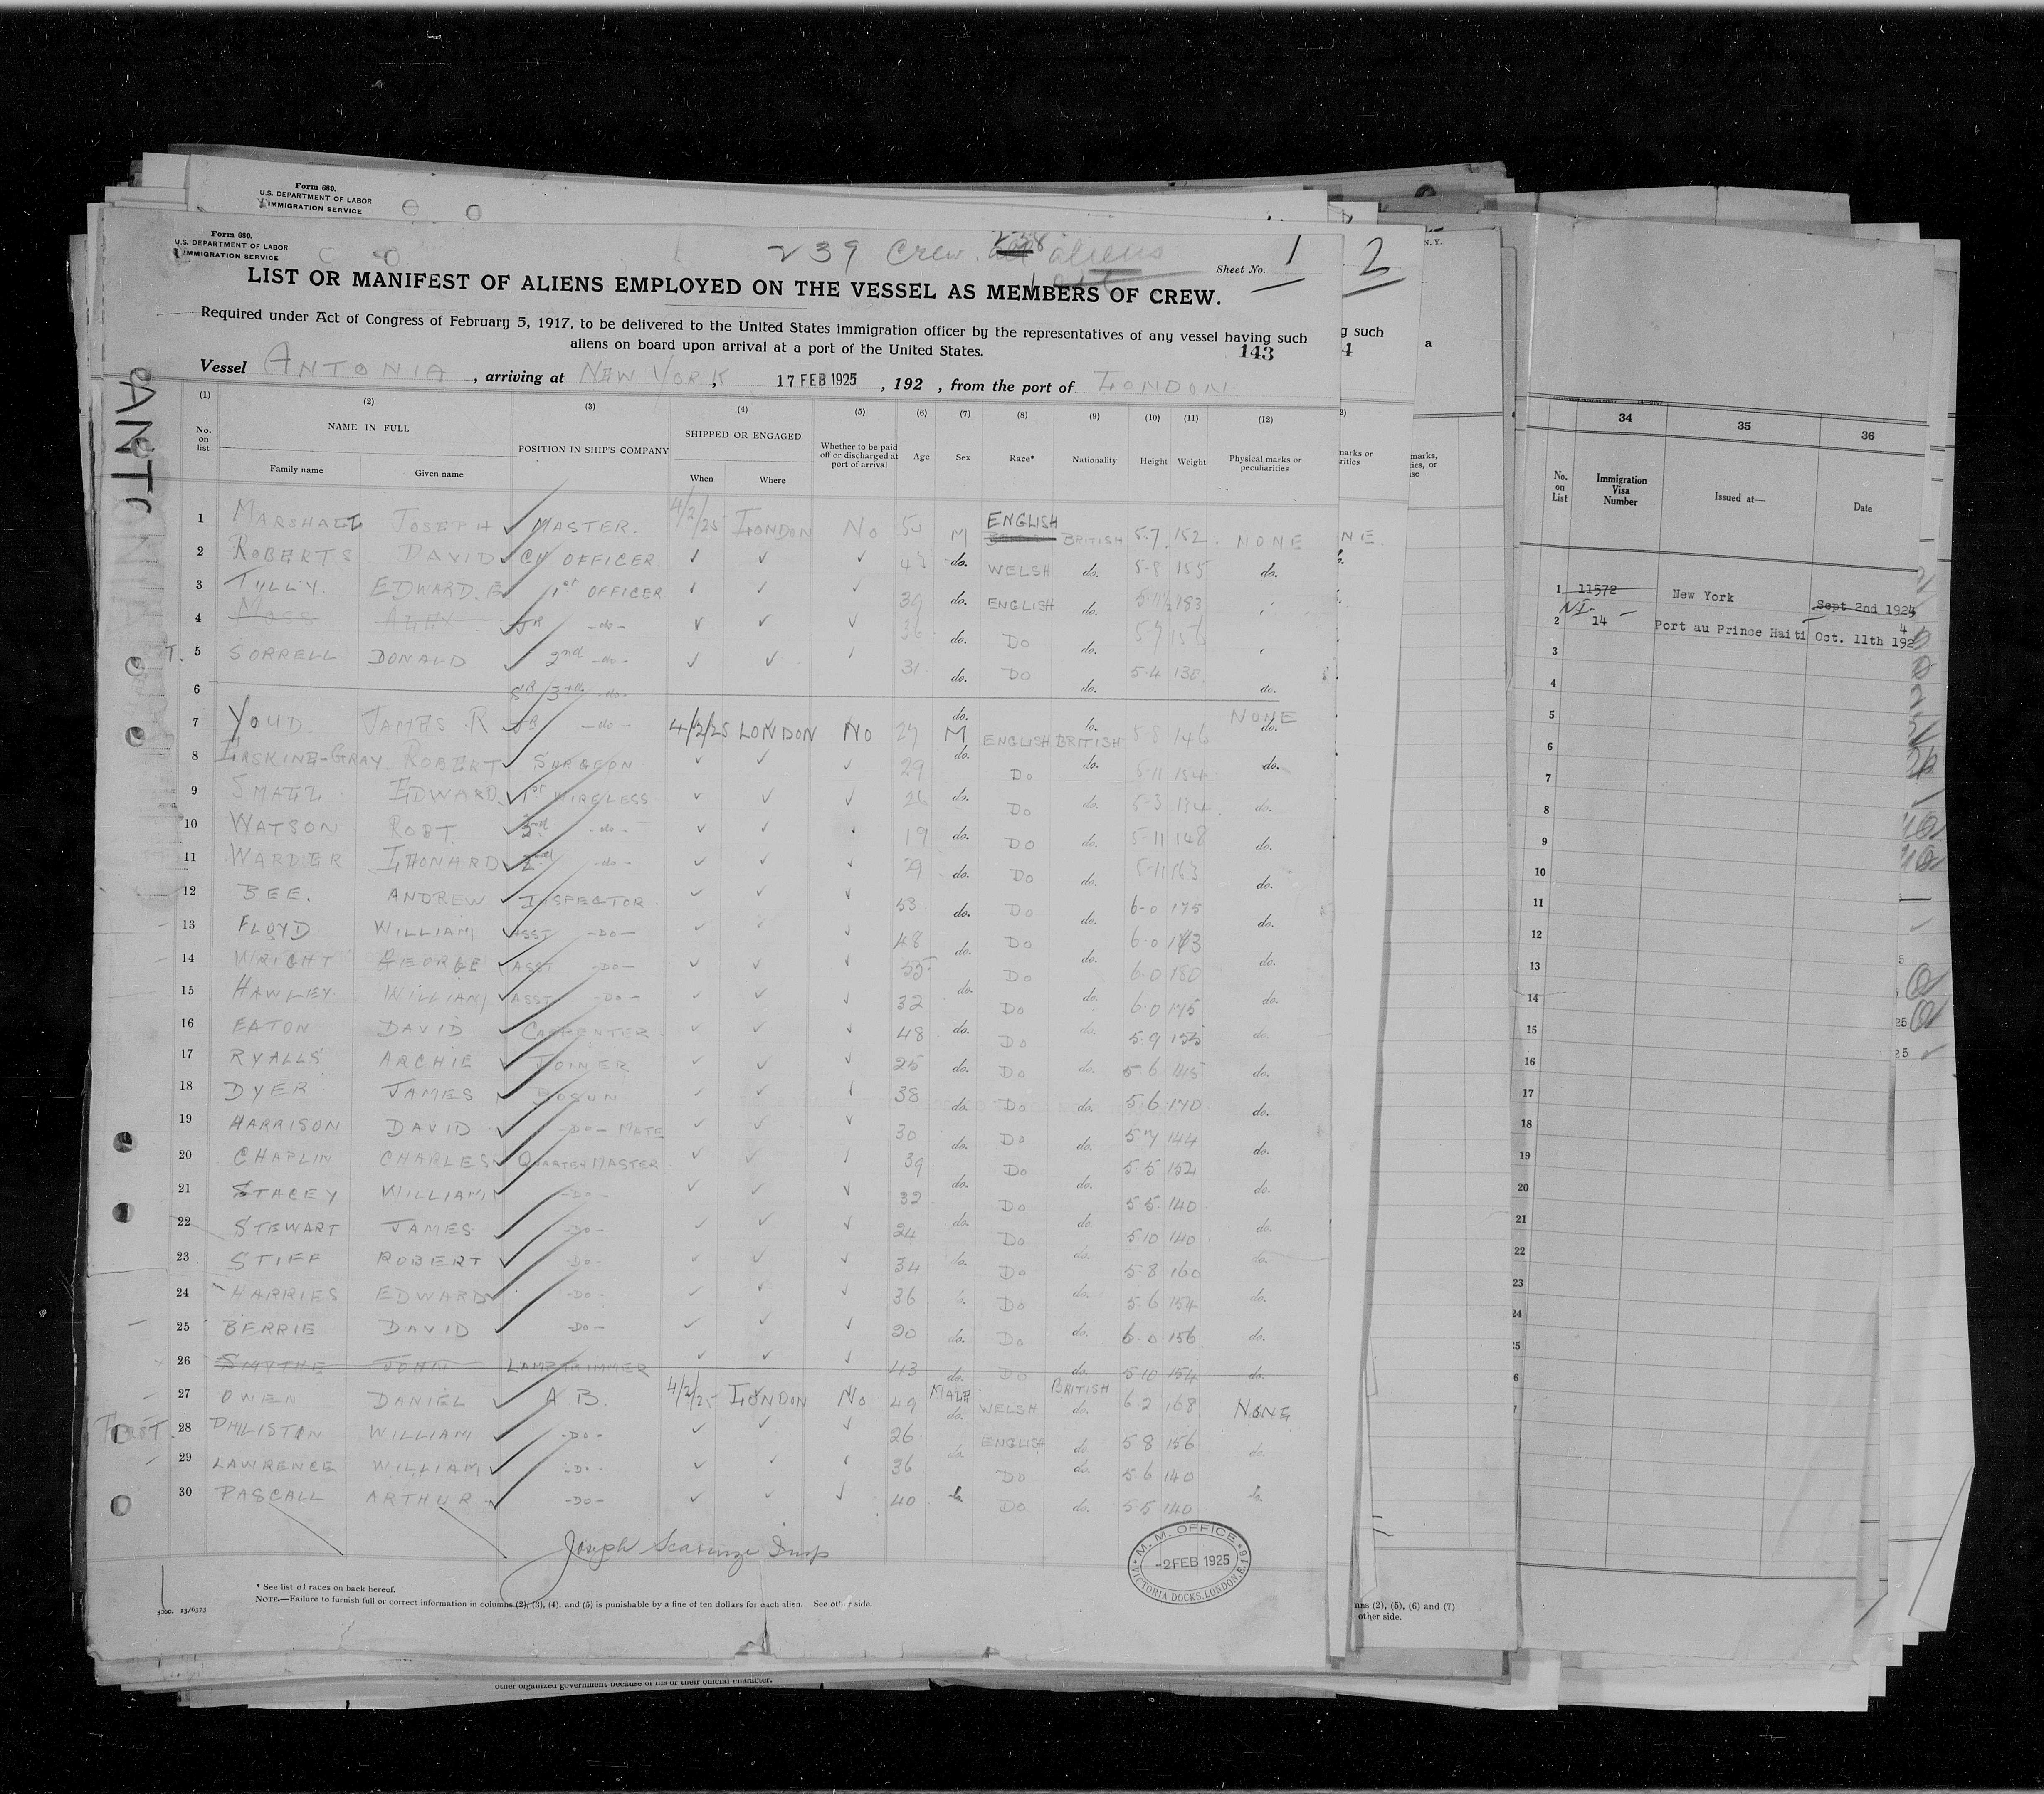 Form 680.
U.S. DEPARTMENT OF LABOR
IMMIGRATION SERVICE
Form 680.
U.S. DEPARTMENT OF LABOR
IMMIGRATION SERVICE
239 Crew 238 aliens
Sheet No. 1
2
N.Y.
LIST OR MANIFEST OF ALIENS EMPLOYED ON THE VESSEL AS MEMBERS OF CREW.
Required under Act of Congress of February 5, 1917, to be delivered to the United States immigration officer by the representatives of any vessel having such
aliens on board upon arrival at a port of the United States.
143
g such
4
a
Vessel ANTONIA, arriving at NEW YORK, 17 FEB 1925, 192 , from the port of LONDON.
ANTONIA
(1) (2) (3) (4) (5) (6) (7) (8) (9) (10) (11) (12)
No. on list
NAME IN FULL
Family name
Given name
POSITION IN SHIP'S COMPANY
SHIPPED OR ENGAGED
When
Where
Whether to be paid off or discharged at port of arrival
Age
Sex
Race*
Nationality
Height
Weight
Physical marks or peculiarities
1 MARSHALL JOSEPH MASTER. 4/2/25 LONDON NO M ENGLISH BRITISH 5.7 152 NONE
2 ROBERTS DAVID CH OFFICER. ✓ ✓ ✓ 43 do. WELSH do. 5-8 155 do.
3 TULLY. EDWARD.B 1st OFFICER ✓ ✓ ✓ 39 do. ENGLISH do. 5-11 1/2 183
4 MOSS ALEX JR -do- ✓ ✓ ✓ 36 do. DO do. 5-7 156
T. 5 SORRELL DONALD 2nd -do- ✓ ✓ ✓ 31 do. DO do. 5-4 130 do.
6 SR/3rd -do-
7 YOUD JAMES.R JR -do- 4/2/25 LONDON NO 27 M ENGLISH BRITISH 5-8 146 NONE do.
8 ERSKINE-GRAY ROBERT SURGEON ✓ ✓ ✓ 29 do. DO do. 5-11 154 do.
9 SMALL EDWARD 1st WIRELESS ✓ ✓ ✓ 26 do. DO do. 5-3 134 do.
10 WATSON ROBT. 3rd -do- ✓ ✓ ✓ 19 do. DO do. 5-11 148 do.
11 WARDER LEONARD 2nd -do- ✓ ✓ ✓ 29 do. DO do. 5-11 163 do.
12 BEE. ANDREW INSPECTOR ✓ ✓ ✓ 53 do. DO do. 6-0 175 do.
13 FLOYD WILLIAM ASST -DO- ✓ ✓ ✓ 48 do. DO do. 6-0 173 do.
14 WRIGHT GEORGE ASST -DO- ✓ ✓ ✓ 55 do. DO do. 6-0 180 do.
15 HAWLEY WILLIAM ASST -DO- ✓ ✓ ✓ 32 do. DO do. 6-0 175 do.
16 EATON DAVID CARPENTER ✓ ✓ ✓ 48 do. DO do. 5.9 155 do.
17 RYALLS ARCHIE JOINER ✓ ✓ ✓ 25 do. DO do. 5 6 145 do.
18 DYER JAMES BOSUN ✓ ✓ ✓ 38 do. DO do. 5 6 170 do.
19 HARRISON DAVID -DO- MATE ✓ ✓ ✓ 30 do. DO do. 5 7 144 do.
20 CHAPLIN CHARLES QUARTERMASTER ✓ ✓ ✓ 39 do. DO do. 5 5 152 do.
21 STACEY WILLIAM -DO- ✓ ✓ ✓ 32 do. DO do. 5 5 140 do.
22 STEWART JAMES -DO- ✓ ✓ ✓ 24 do. DO do. 5 10 140 do.
23 STIFF ROBERT -DO- ✓ ✓ ✓ 34 do. DO do. 5 8 160 do.
24 HARRIES EDWARD -DO- ✓ ✓ ✓ 36 do. DO do. 5 6 154 do.
25 BERRIE DAVID -DO- ✓ ✓ ✓ 20 do. DO do. 6 0 156 do.
26 SMYTHE JOHN LAMPTRIMMER ✓ ✓ ✓ 43 do. DO do. 5 10 154 do.
27 OWEN DANIEL A.B. 4/2/25 LONDON NO 49 MALE WELSH BRITISH do. 6 2 168 NONE
28 PHILISTIN WILLIAM -DO- ✓ ✓ ✓ 26 do. ENGLISH do. 5 8 156 do.
29 LAWRENCE WILLIAM -DO- ✓ ✓ ✓ 36 DO do. 5 6 140
30 PASCALL ARTHUR -DO- ✓ ✓ ✓ 40 do. DO do. 5 5 140 do.
Joseph Scarinzi Insp
M. M. OFFICE
-2 FEB 1925
VICTORIA DOCKS, LONDON, E.16
* See list of races on back hereof.
NOTE.—Failure to furnish full or correct information in columns (2), (3), (4), and (5) is punishable by a fine of ten dollars for each alien. See other side.
13/6373
other organized government because of his or their official character.
ns (2), (5), (6) and (7)
other side.
34 35 36
No. on List
Immigration Visa Number
Issued at—
Date
1 11572 New York Sept 2nd 1924
2 14 Port au Prince Haiti Oct. 11th 1924
3
4
5
6
7
8
9
10
11
12
13
14
15
16
17
18
19
20
21
22
23
24
25